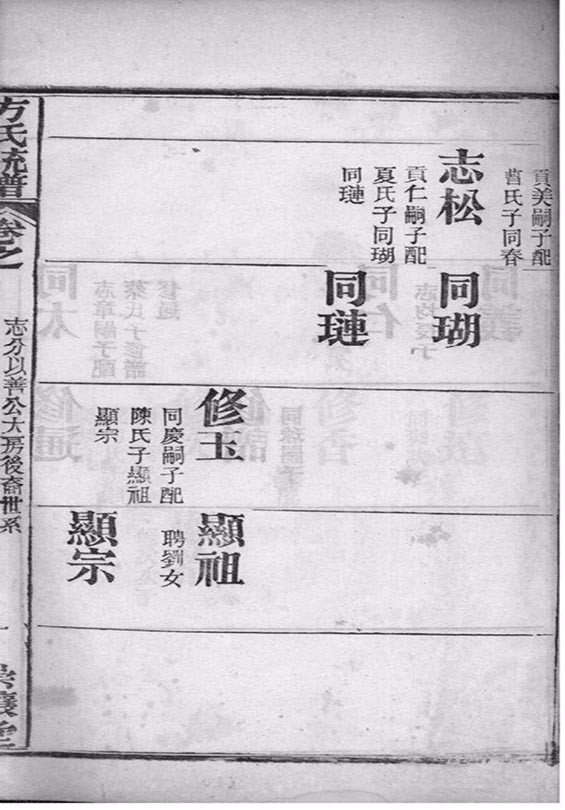 貢美嗣子配
曹氏子同春
志松
貢仁嗣子配
夏氏子同瑚
同璉
同瑚
同璉
修玉
同慶嗣子配
陳氏子顯祖
顯宗
顯祖
聘劉女
顯宗
方氏統譜
卷之
志分以善公大房後裔世系